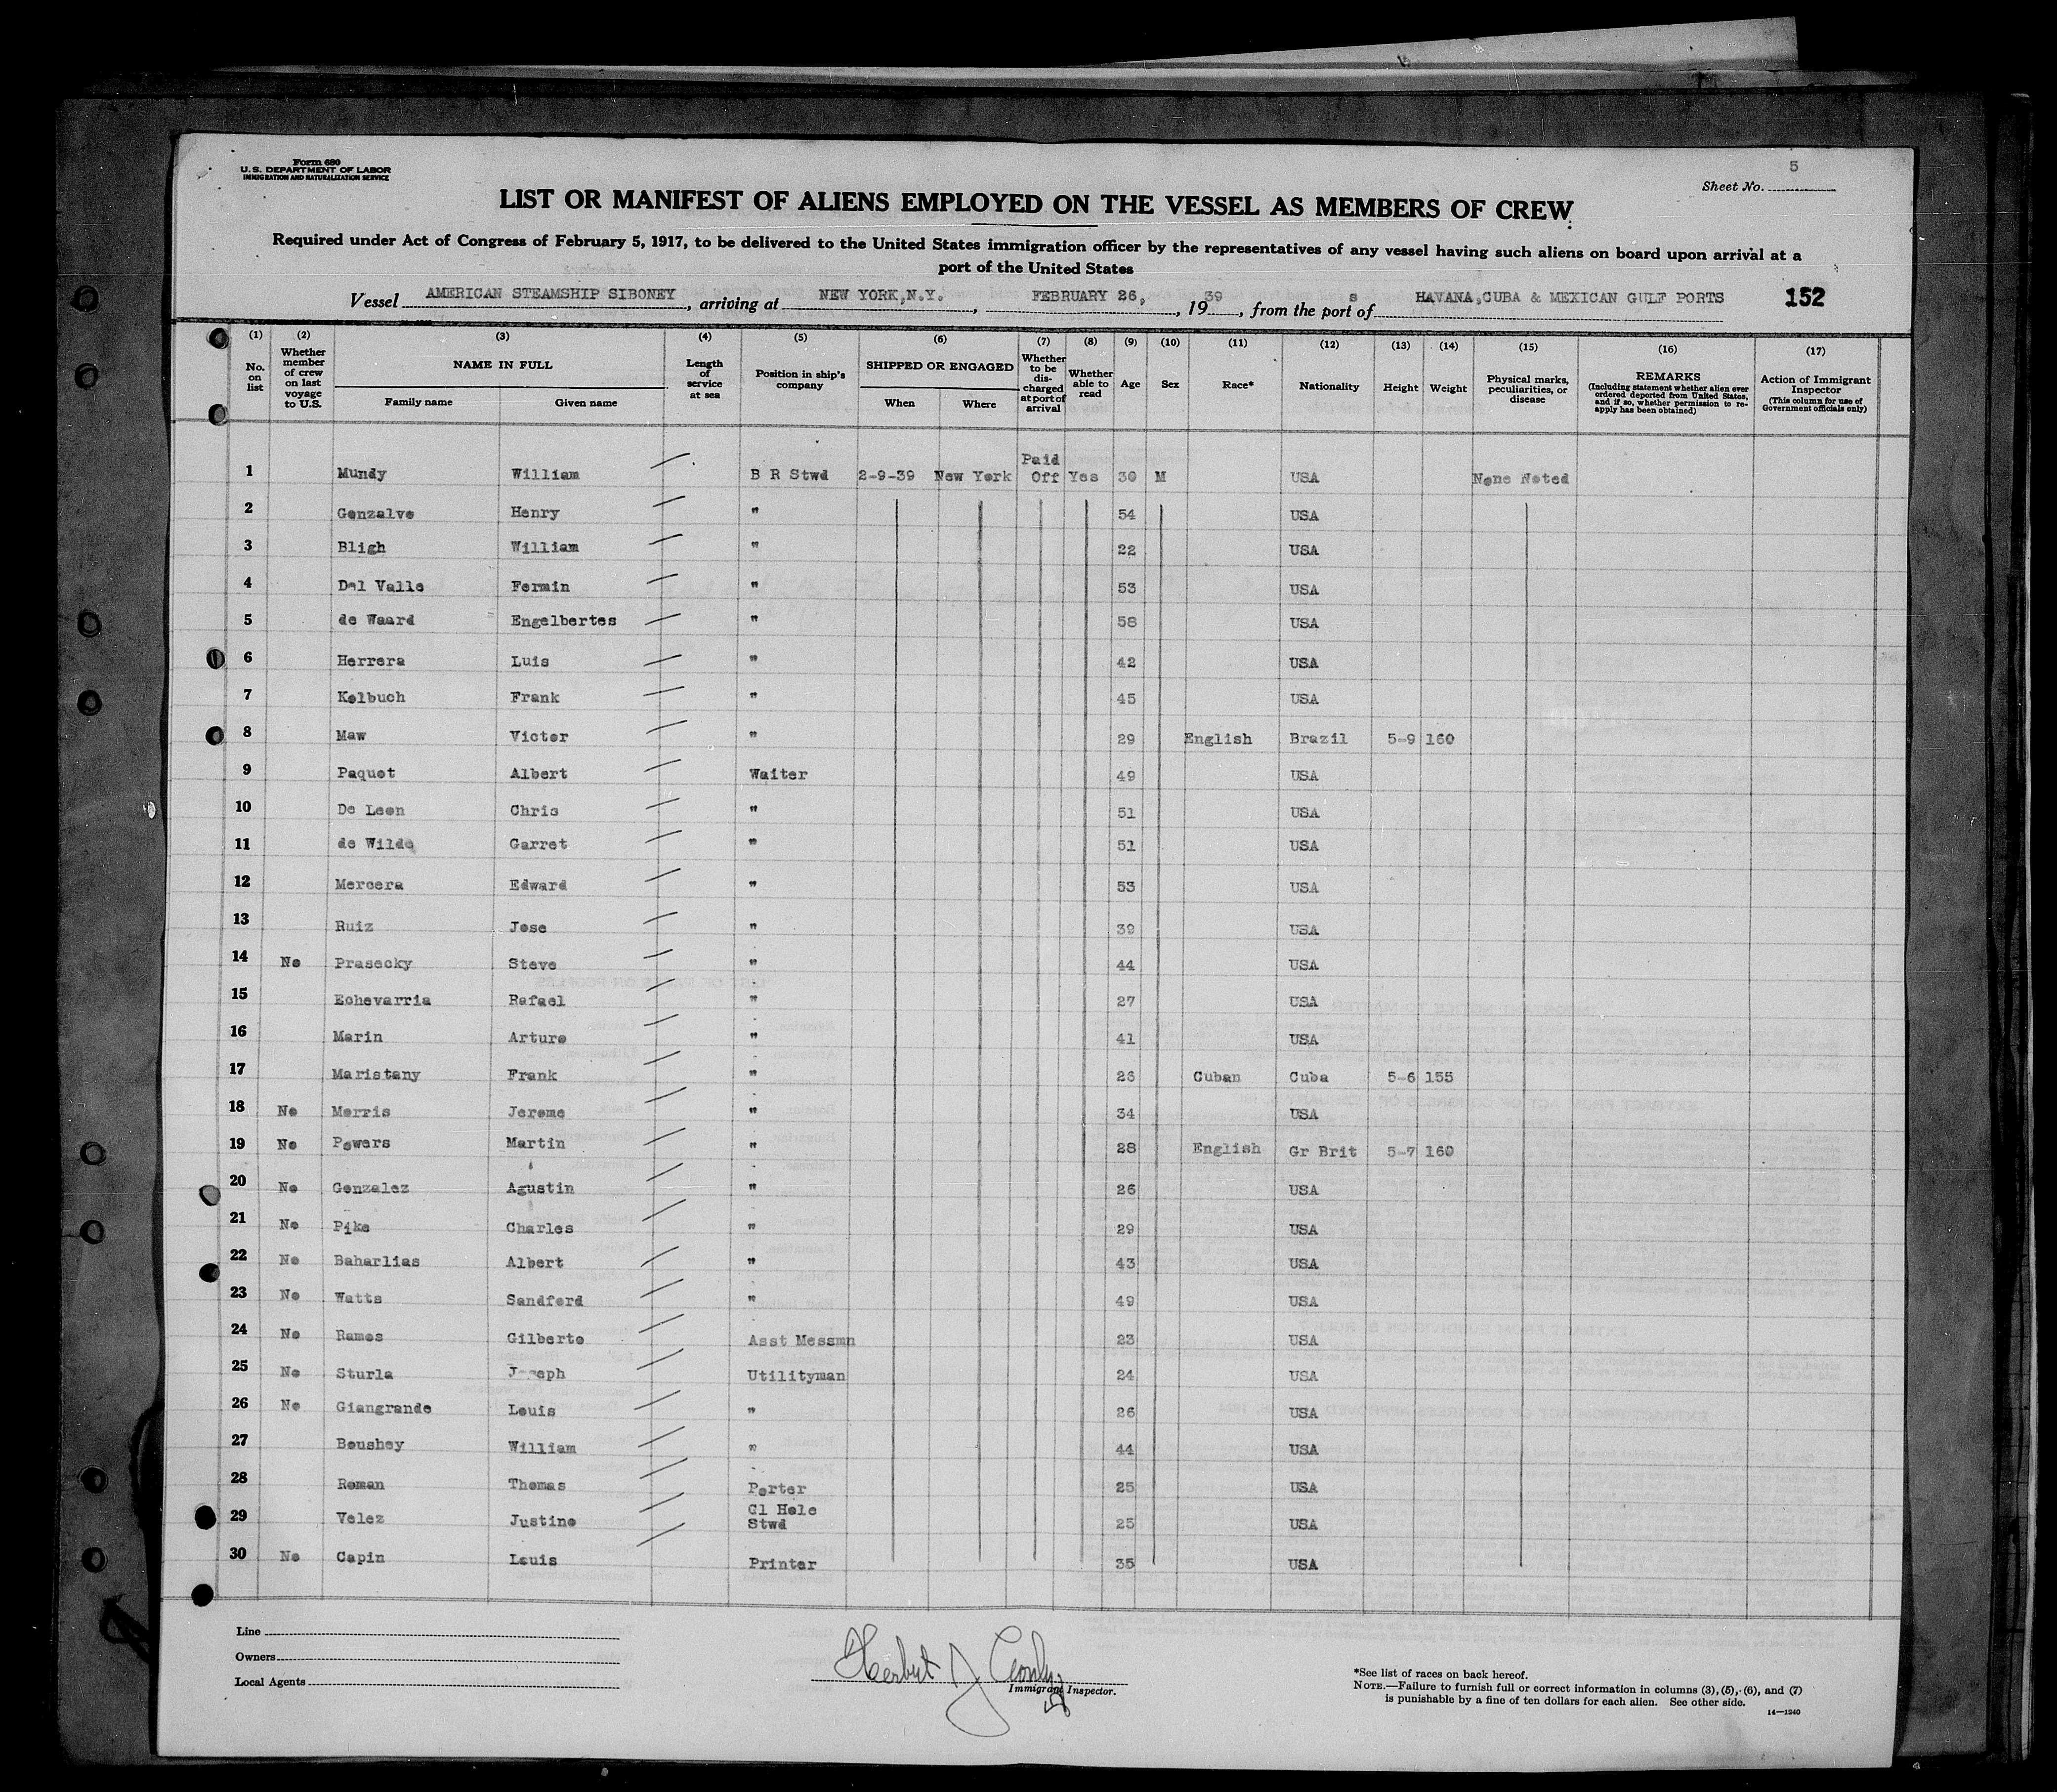 Form 680
U. S. DEPARTMENT OF LABOR
IMMIGRATION AND NATURALIZATION SERVICE
5
Sheet No.
LIST OR MANIFEST OF ALIENS EMPLOYED ON THE VESSEL AS MEMBERS OF CREW
Required under Act of Congress of February 5, 1917, to be delivered to the United States immigration officer by the representatives of any vessel having such aliens on board upon arrival at a
port of the United States
Vessel AMERICAN STEAMSHIP SIBONEY, arriving at NEW YORK,N.Y., FEBRUARY 26, 1939, from the port of s HAVANA,CUBA & MEXICAN GULF PORTS 152
(1) (2) (3) (4) (5) (6) (7) (8) (9) (10) (11) (12) (13) (14) (15) (16) (17)
No. on list Whether member of crew on last voyage to U.S. NAME IN FULL Family name Given name Length of service at sea Position in ship's company SHIPPED OR ENGAGED When Where Whether to be discharged at port of arrival Whether able to read Age Sex Race* Nationality Height Weight Physical marks, peculiarities, or disease REMARKS (Including statement whether alien ever ordered deported from United States, and if so, whether permission to re-apply has been obtained) Action of Immigrant Inspector (This column for use of Government officials only)
1 Mundy William B R Stwd 2-9-39 New York Paid Off Yes 30 M USA None Noted
2 Gonzalve Henry " 54 USA
3 Bligh William " 22 USA
4 Del Valle Fermin " 53 USA
5 de Waard Engelbertes " 58 USA
6 Herrera Luis " 42 USA
7 Kelbuch Frank " 45 USA
8 Maw Victor " 29 English Brazil 5-9 160
9 Paquet Albert Waiter 49 USA
10 De Leon Chris " 51 USA
11 de Wilde Garret " 51 USA
12 Mercera Edward " 53 USA
13 Ruiz Jose " 39 USA
14 No Prasecky Steve " 44 USA
15 Echevarria Rafael " 27 USA
16 Marin Arturo " 41 USA
17 Maristany Frank " 26 Cuban Cuba 5-6 155
18 No Morris Jerome " 34 USA
19 No Powers Martin " 28 English Gr Brit 5-7 160
20 No Gonzalez Agustin " 26 USA
21 No Pike Charles " 29 USA
22 No Baharlias Albert " 43 USA
23 No Watts Sandford " 49 USA
24 No Ramos Gilberto Asst Messmn 23 USA
25 No Sturla Joseph Utilityman 24 USA
26 No Giangrande Louis " 26 USA
27 Boushey William " 44 USA
28 Roman Thomas Porter 25 USA
29 Velez Justino Gl Hole Stwd 25 USA
30 No Capin Louis Printer 35 USA
Line
Owners
Local Agents
Herbert J
Immigrant Inspector.
*See list of races on back hereof.
NOTE.—Failure to furnish full or correct information in columns (3), (5), (6), and (7)
is punishable by a fine of ten dollars for each alien. See other side.
14—1240